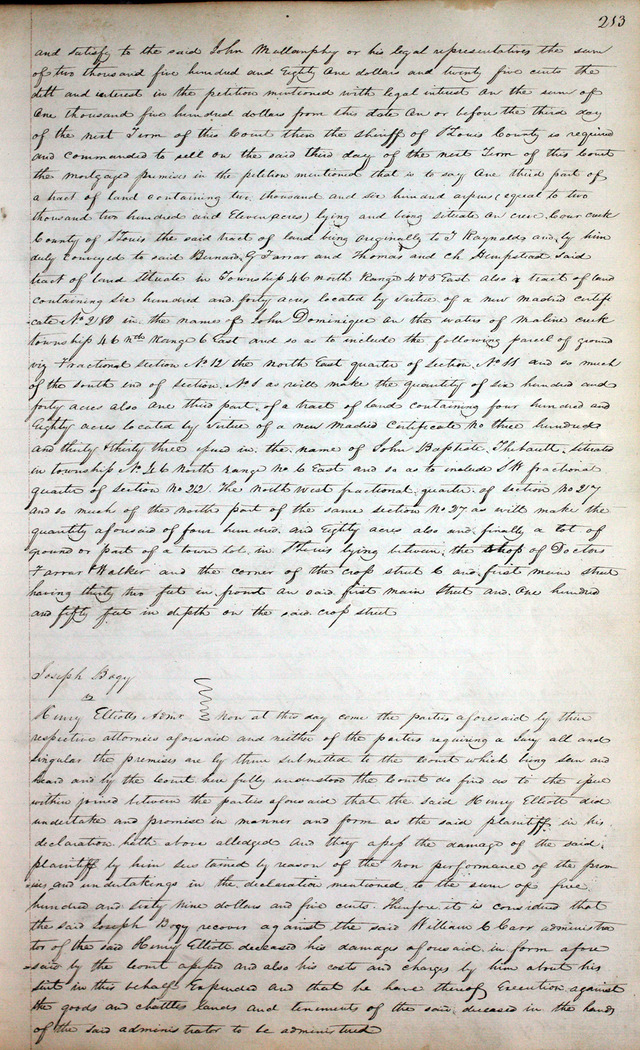 213
and satisfy to the said John Mullanphy or his legal representatives the sum
of two thousand five hundred and Eighty one dollars and twenty five cents the
debt and interest in the petition mentioned with legal interest on the sum of
one thousand five hundred dollars from this date on or before the third day
of the next Term of this Court then the sheriff of St Louis County is required
and commanded to sell on the said third day of the next Term of this Court
the mortgaged premises in the petition mentioned that is to say one third part of
a tract of land containing two thousand and six hundred arpens (equal to two
thousand two hundred and Eleven acres) lying and being situate on creve Coeur creek
County of St Louis the said tract of land being originally to J Raynolds and by him
duly conveyed to said Bernard G Farrar and Thomas and Ch Hempstead said
tract of land situate in Township 46 north Range 4 & 5 East also a tract of land
containing six hundred and forty acres located by virtue of a new Madrid certifi
cate No 280 in the name of John Dominique on the waters of maline creek
township 46 nth Range 6 East and so as to include the following parcel of ground
viz Fractional section No 12 the north East quarter of section No 11 and so much
of the south end of section No 1 as will make the quantity of six hundred and
forty acres also one third part of a tract of land containing four hundred and
Eighty acres located by virtue of a new Madrid Certificate No three hundred
and thirty & thirty three issued in the name of John Baptiste Thibault situated
in township No 46 North range No 6 East and so as to include S W fractional
quarter of section No 22 The North west fractional quarter of section No 27
and so much of the north part of the same section No 27 as will make the
quantity aforesaid of four hundred and Eighty acres also and finally a lot of
ground or part of a town lot in St Louis lying between the shop of Doctors
Farrar & Walker and the corner of the cross street C and first main street
having thirty two feet in front on said first main street and one hundred
and fifty feet in depth on the said cross street
Joseph Bogy
vs
Henry Elliotts Admr Now at this day come the parties aforesaid by their
respective attornies aforesaid and neither of the parties requiring a Jury all and
singular the premises are by them submitted to the Court which being seen and
heard and by the Court here fully understood the Court do find as to the issue
within joined between the parties aforesaid that the said Henry Elliott did
undertake and promise in manner and form as the said plaintiff in his
declaration hath above alledged and they assess the damage of the said
plaintiff by him sustained by reason of the non performance of the prom
ises and undertakings in the declaration mentioned to the sum of five
hundred and sixty nine dollars and five cents. Therefore it is considered that
the said Joseph Bogy recover against the said William C Carr administra
tor of the said Henry Elliott deceased his damages aforesaid in form afore
said by the Court assessed and also his costs and charges by him about his
suit in this behalf Expended and that he have thereof Execution against
the goods and chattles lands and tenements of the said deceased in the hands
of the said administrator to be administered